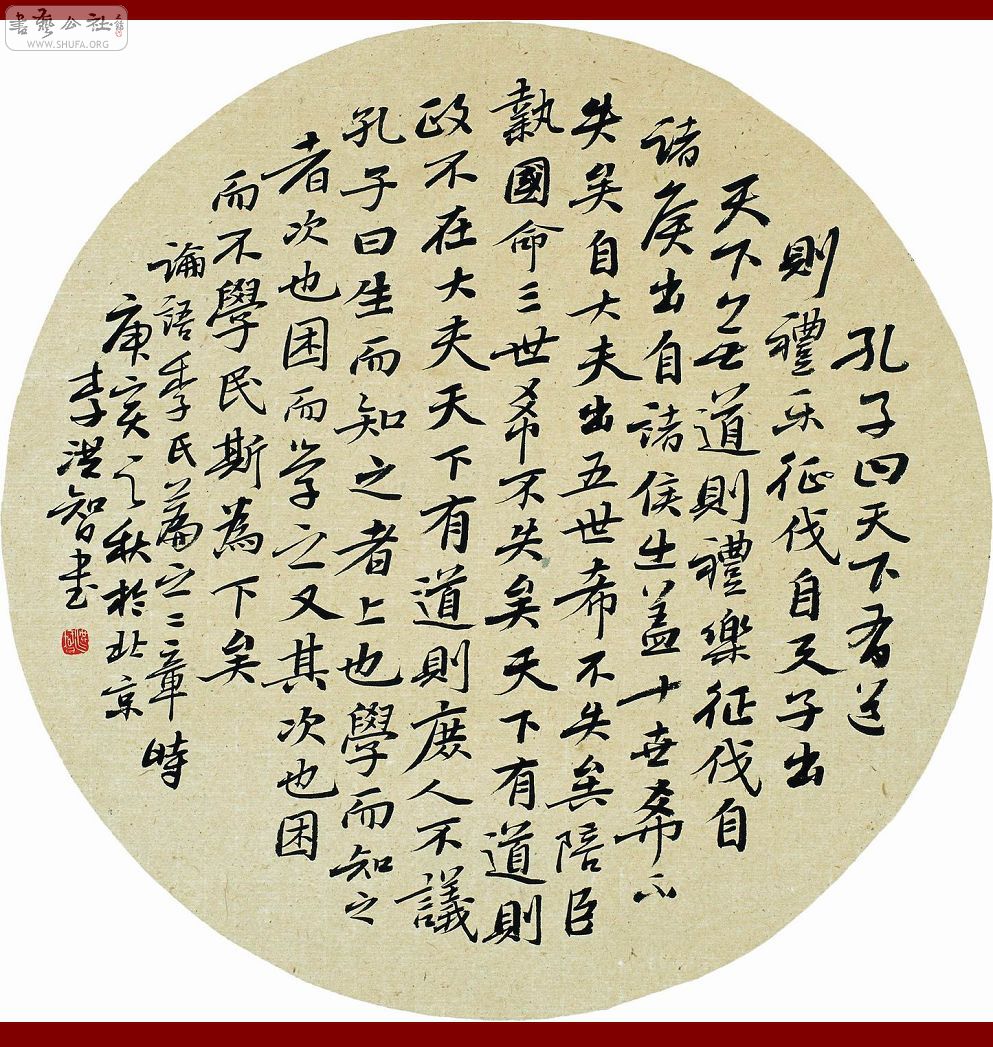 書藝公社
WWW.SHUFA.ORG
孔子曰天下有道
則禮乐征伐自天子出
天下无道則禮樂征伐自
諸侯出自諸侯出蓋十世希不
失矣自大夫出五世希不失矣陪臣
執國命三世希不失矣天下有道則
政不在大夫天下有道則庶人不議
孔子曰生而知之者上也學而知之
者次也困而学之又其次也困
而不學民斯為下矣
論語季氏篇之二章時
庚寅之秋於北京
李洪智書